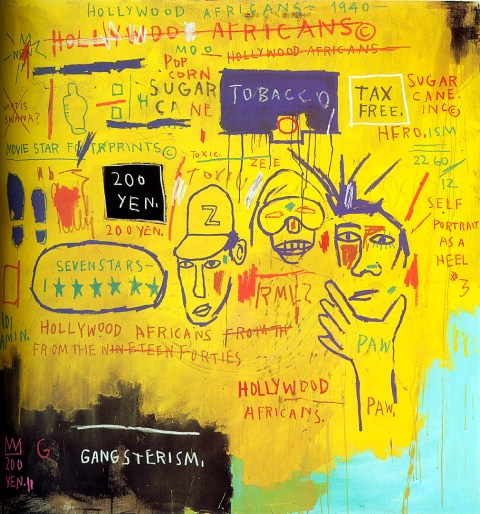 HOLLYWOOD AFRICANS - 1940 -
HOLLYWOOD AFRICANS ©
HOLLYWOOD AFRICANS
POP
CORN
SUGAR
CANE
TOBACCO
TAX
FREE.
SUGAR
CANE.
INC©
HERO.ISM
2260
12
WHAT IS
BWANA?
MOVIE STAR FOOTPRINTS©
TOXIC
ZEE
TOXIC
200
YEN.
200 YEN.
Z
SELF
PORTRAIT
AS A
HEEL
#3
SEVEN STARS-
1★★★★★★
RMLZ
IDI
AMIN.
HOLLYWOOD AFRICANS FROM TH
FROM THE NINETEEN FORTIES
PAW
HOLLYWOOD
AFRICANS.
PAW.
GANGSTERISM.
G
200
YEN.